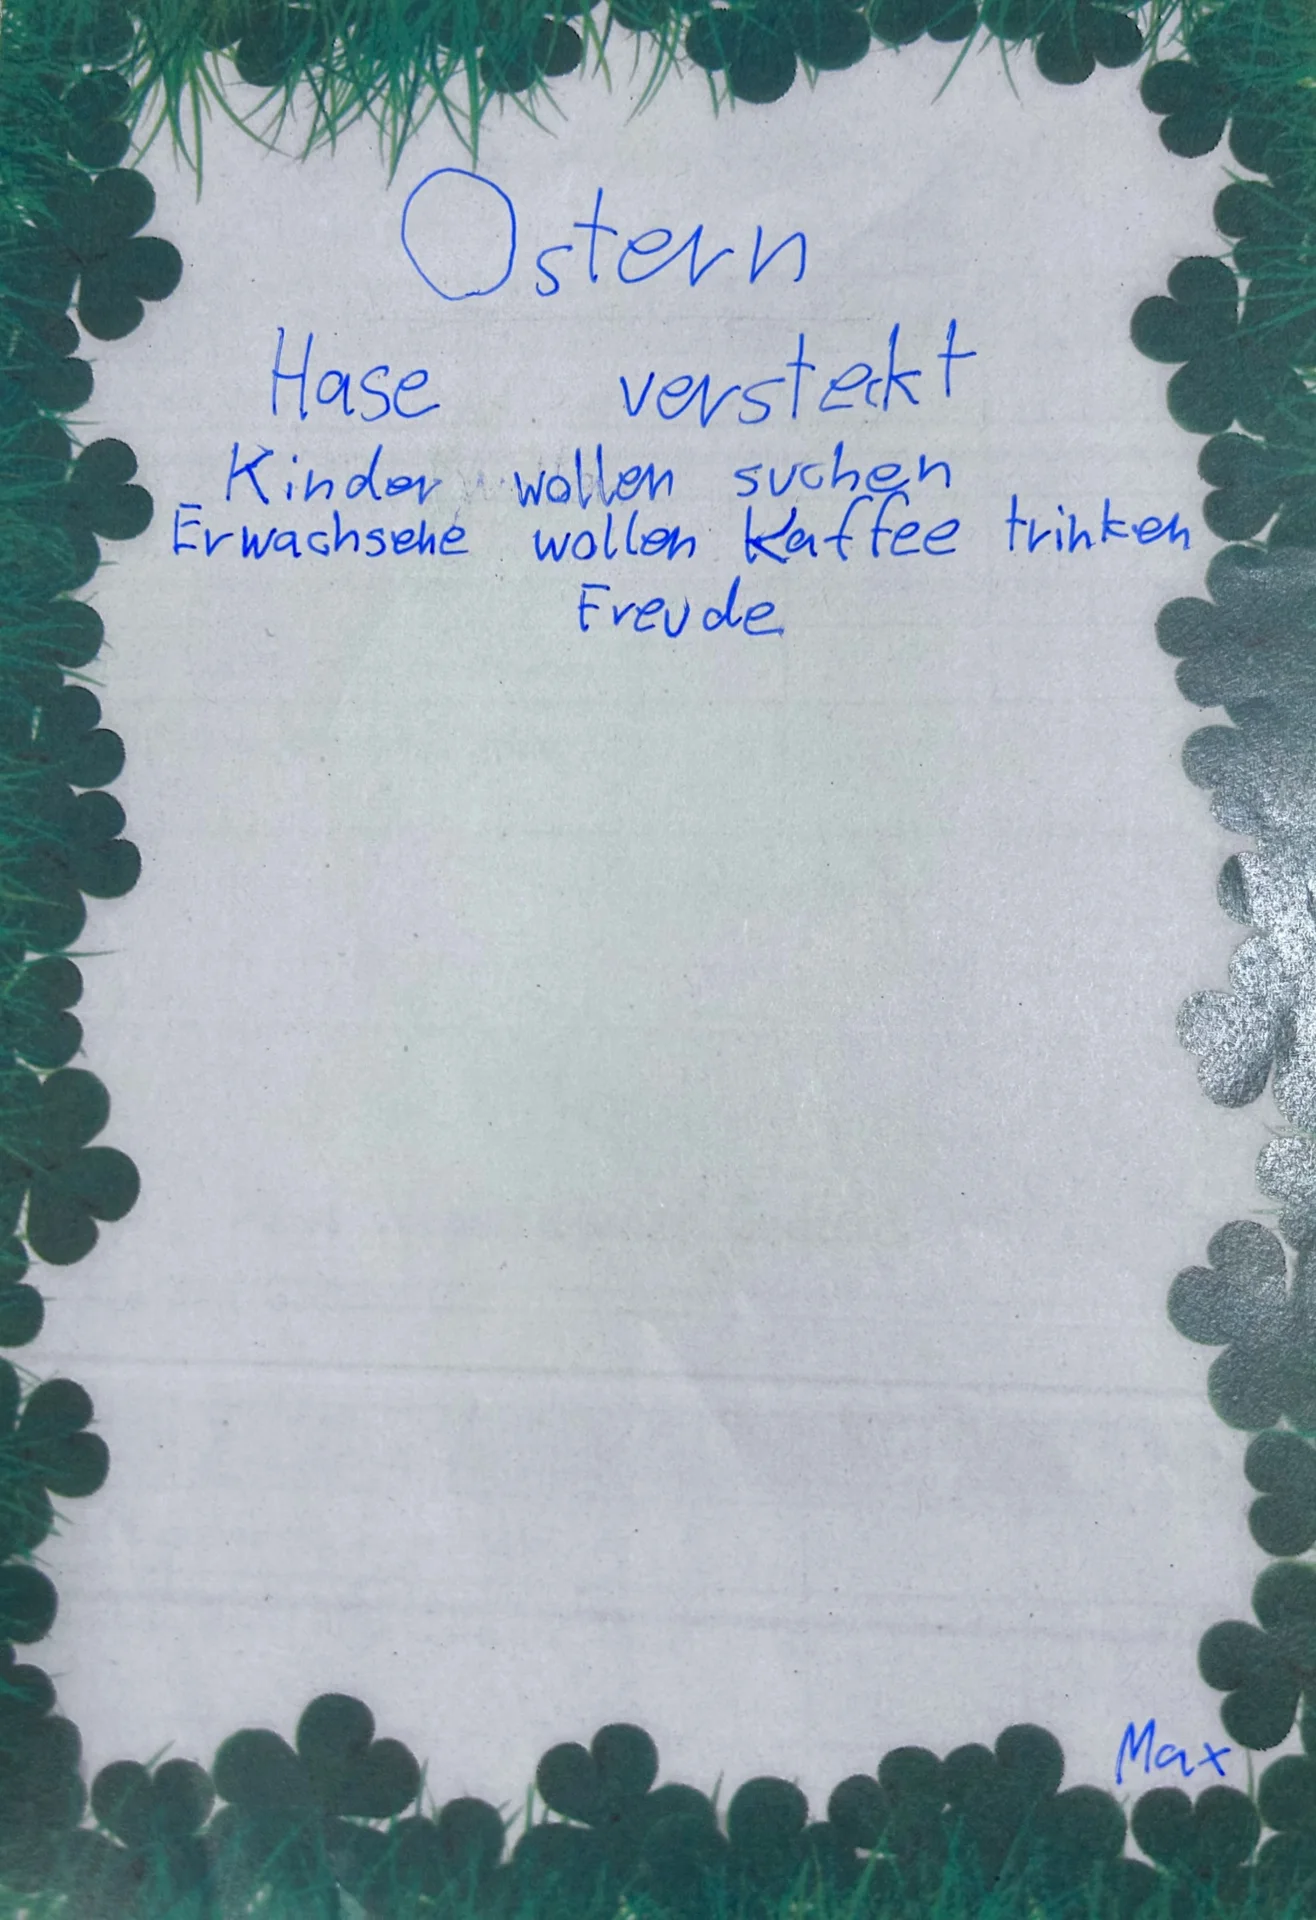 Ostern
Hase versteckt
Kinder wollen suchen
Erwachsene wollen Kaffee trinken
Freude
Max